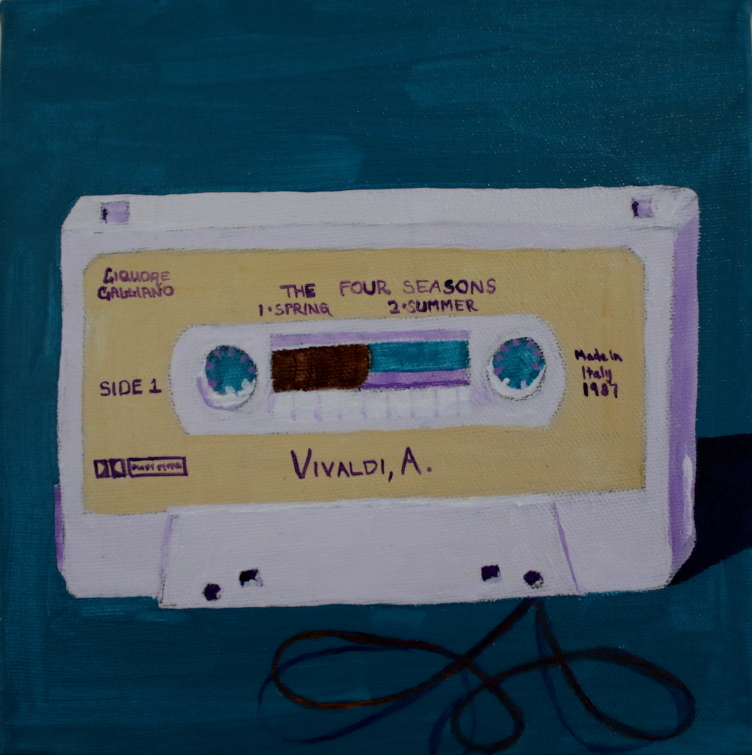 LIQUORE
GALLIANO
THE FOUR SEASONS
1•SPRING 2•SUMMER
SIDE 1
Made in
Italy
1987
VIVALDI, A.